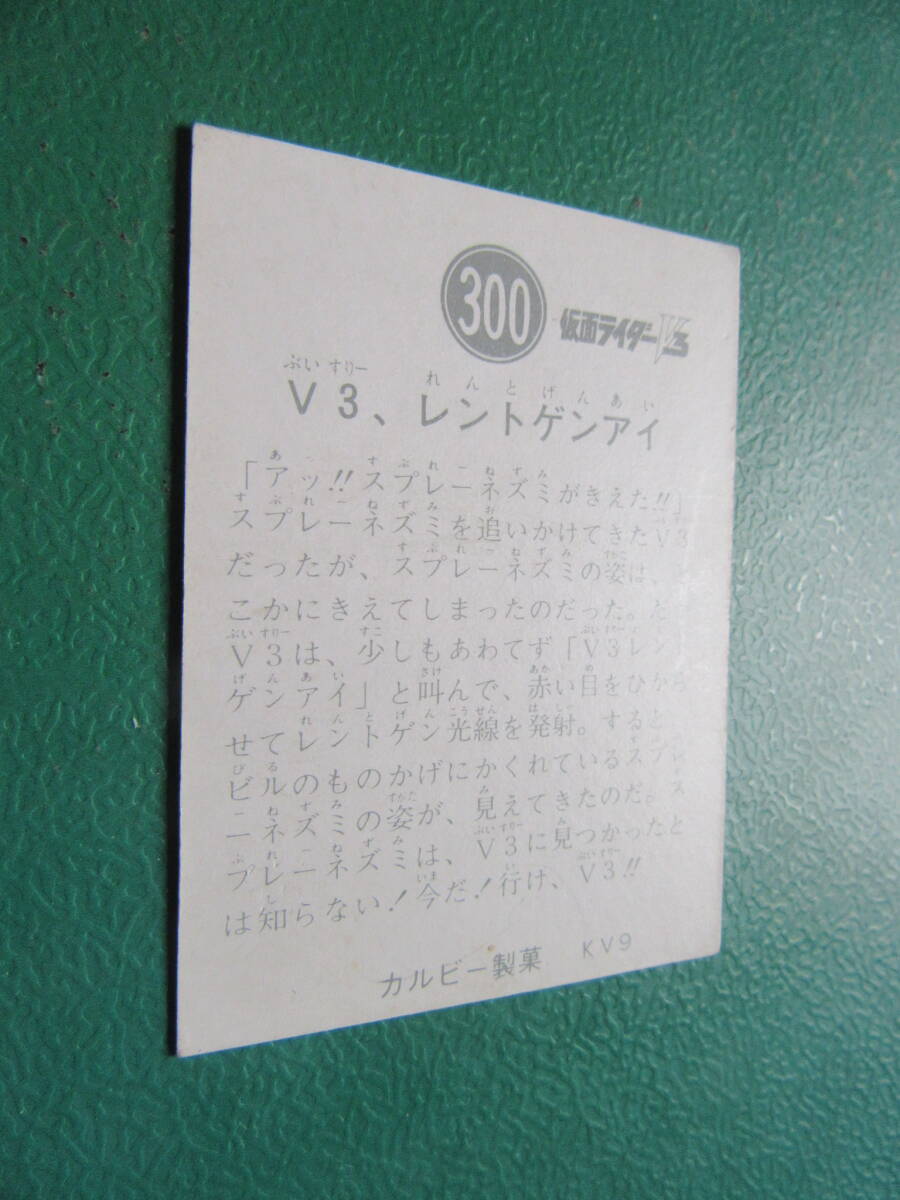 300 仮面ライダーV3
ぶい すりー れんとげんあい
V3、レントゲンアイ
「アッ!!スプレーネズミがきえた!!」
スプレーネズミを追いかけてきたV3
だったが、スプレーネズミの姿は、
こかにきえてしまったのだった。だ
V3は、少しもあわてず「V3レント
ゲンアイ」と叫んで、赤い目をひから
せてレントゲン光線を発射。すると
ビルのものかげにかくれているスプレ
ーネズミの姿が、見えてきたのだ。ス
プレーネズミは、V3に見つかったと
は知らない!今だ!行け、V3!!
カルビー製菓 KV9